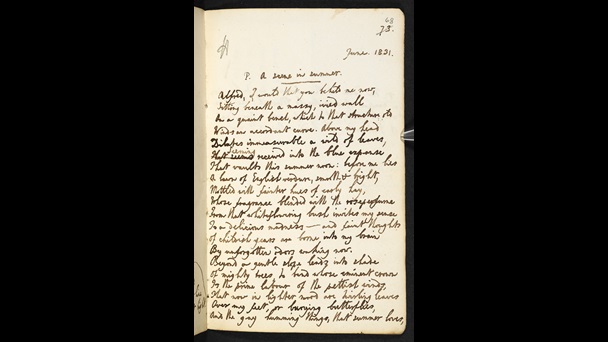 68
73.
June. 1831.
P. A scene in summer.
Alfred, I would that you beheld me now,
Sitting beneath a mossy, ivied wall
On a quaint bench, which to that structure old
Winds an accordant curve. Above my head
Dilates immeasurable a wild of leaves,
seeming received into the blue expanse
That vaults this summer noon: before me lies
A lawn of English verdure, smooth & bright,
Mottled with fainter hues of early hay,
Whose fragrance blended with the rose perfume
From that whiteflowering bush invites my sense
To a delicious madness — and faint thoughts
Of childish years are borne into my brain
By unforgotten waking now.
Beyond a gentle slope leads into shade
Of mighty trees, to bend whose eminent crown
Is the prime labour of the pettish winds,
That now in lighter mood are twirling leaves
Over my feet, or hurrying butterflies,
And the gay humming things, that summer loves,